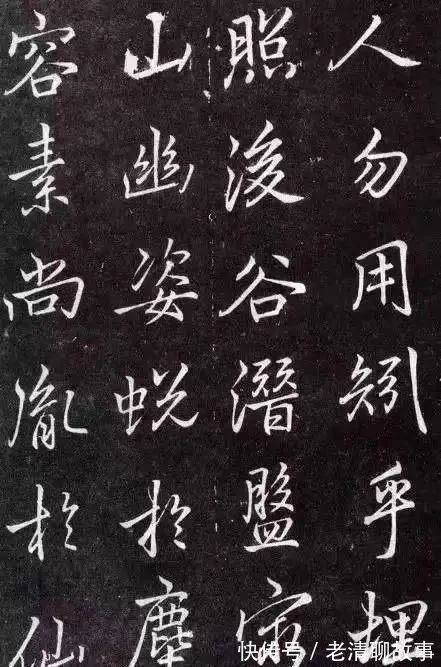 人勿用矧乎埋
照浚谷潛盤
山幽姿蛻於塵
容素尚胤於仙
快传号 / 老清聊故事